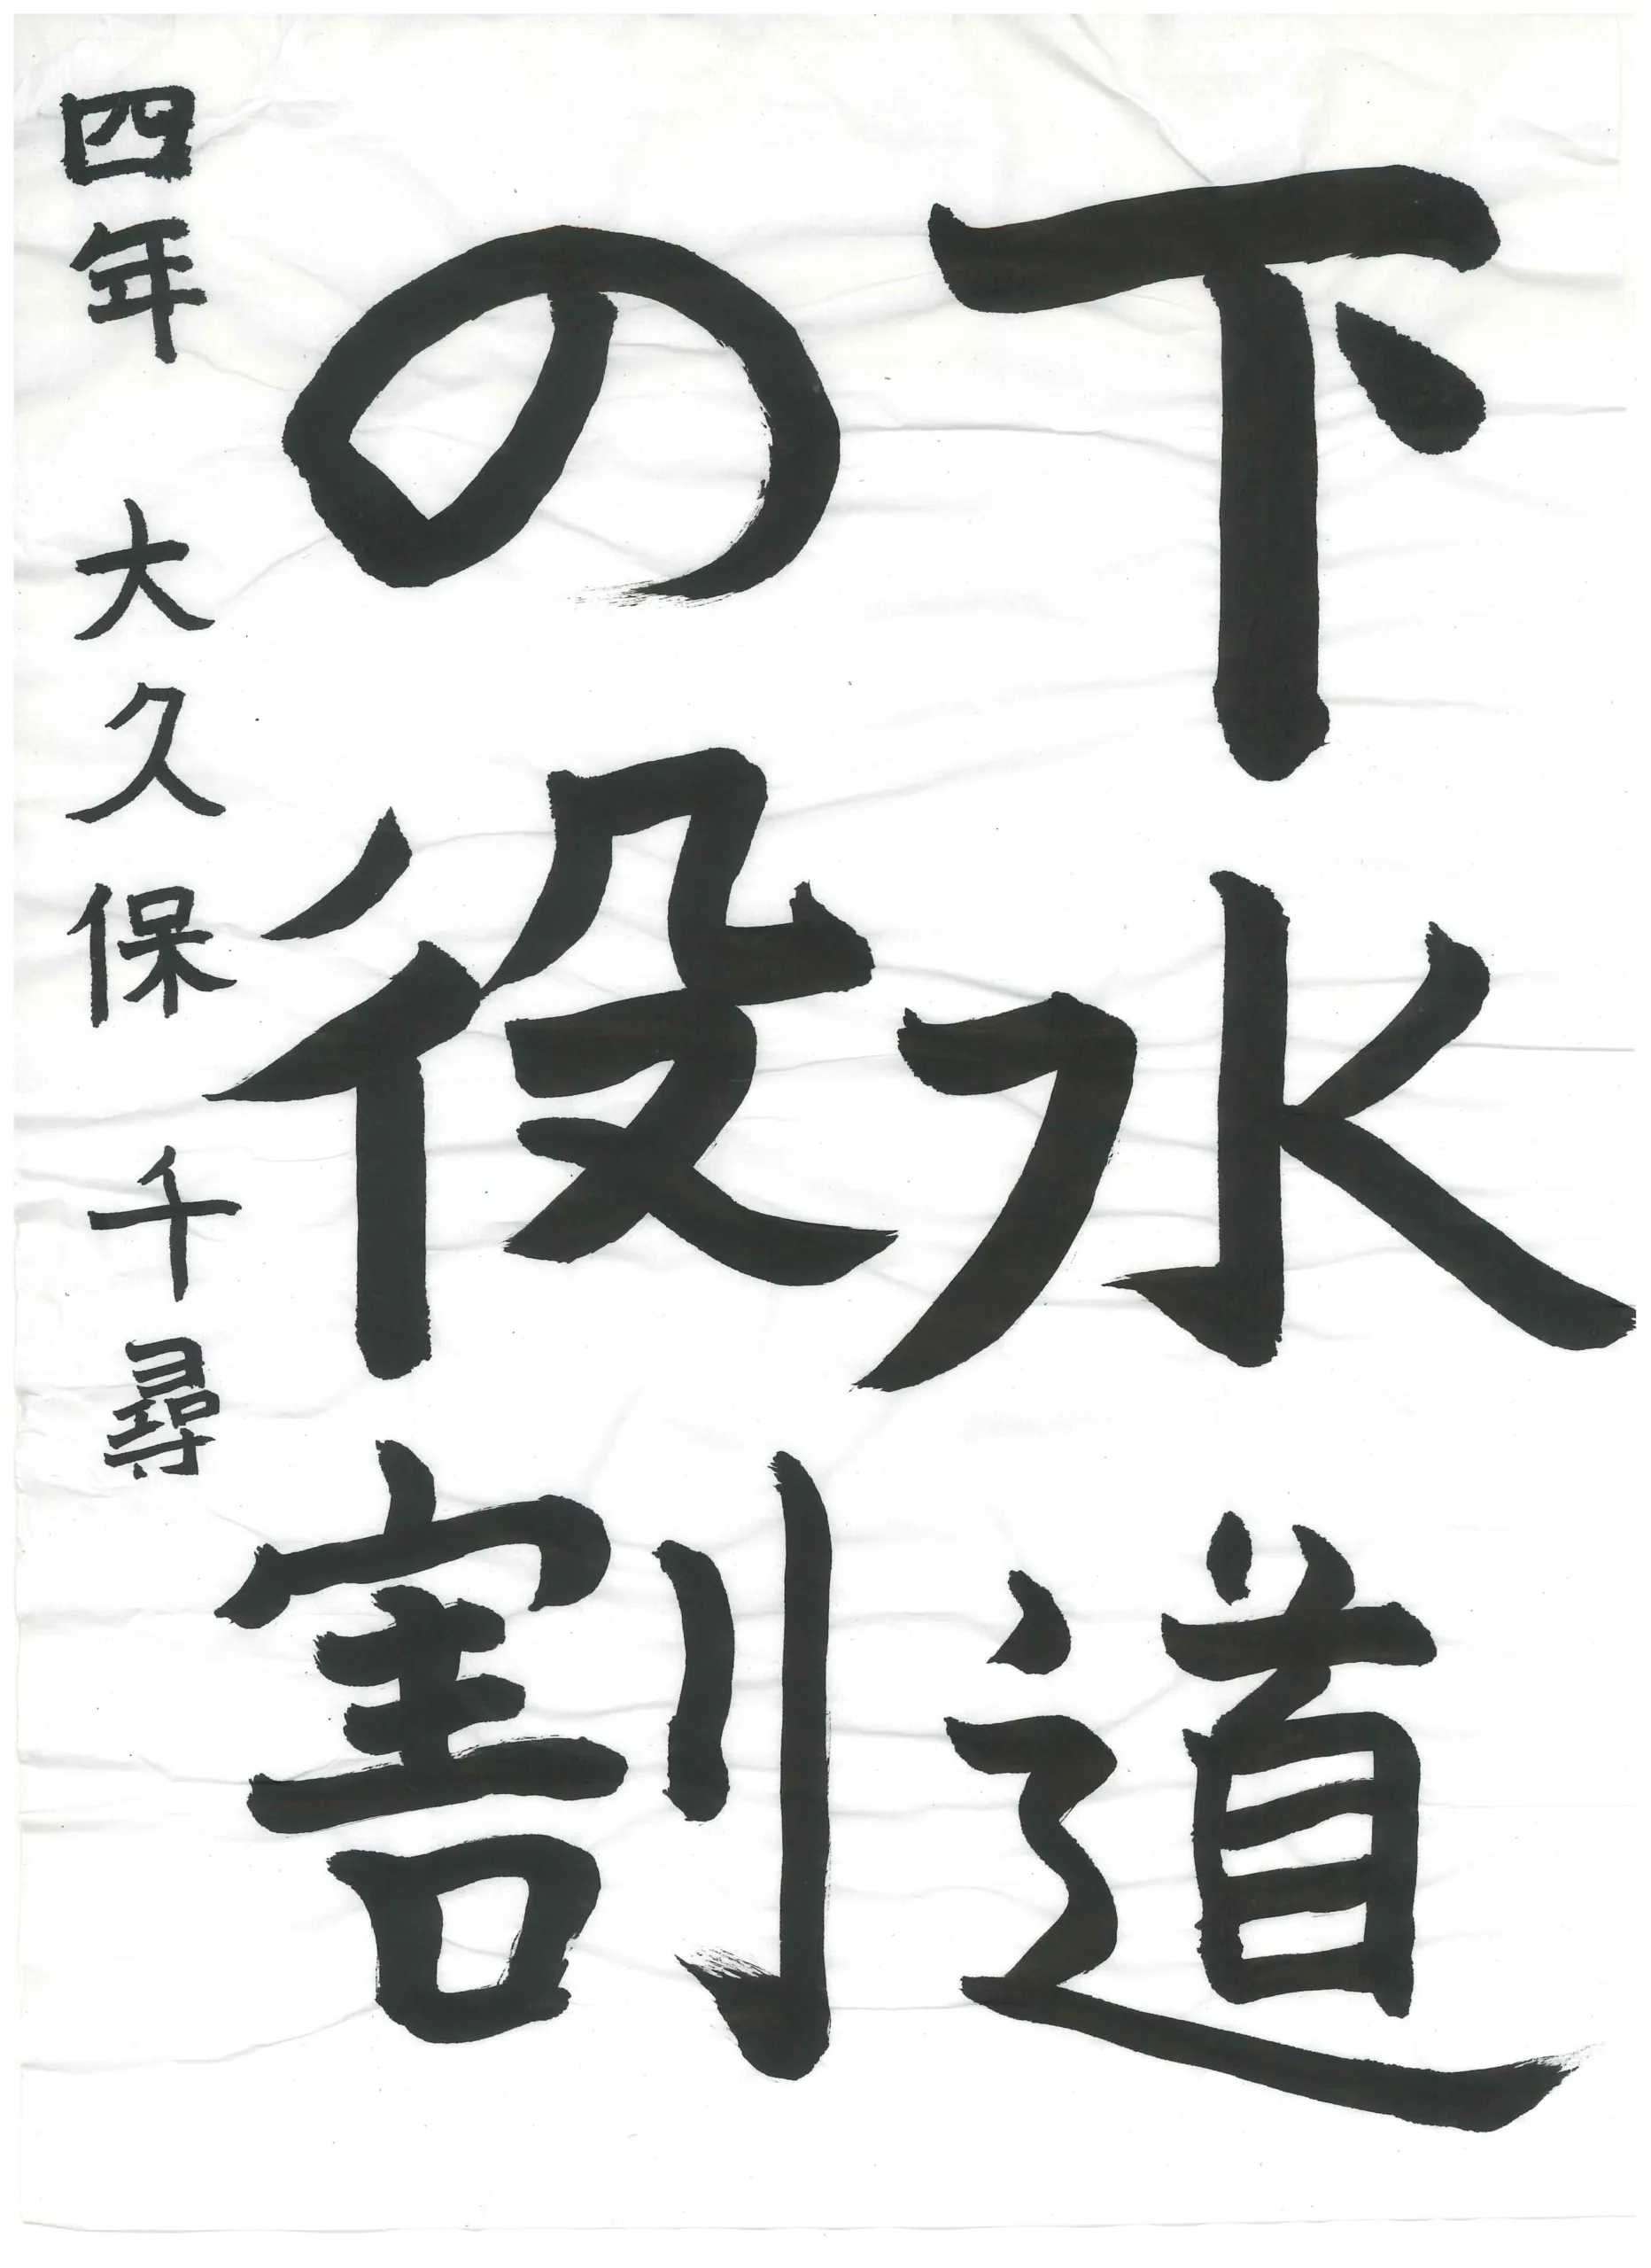 下水道
の役割
四年 大久保 千尋